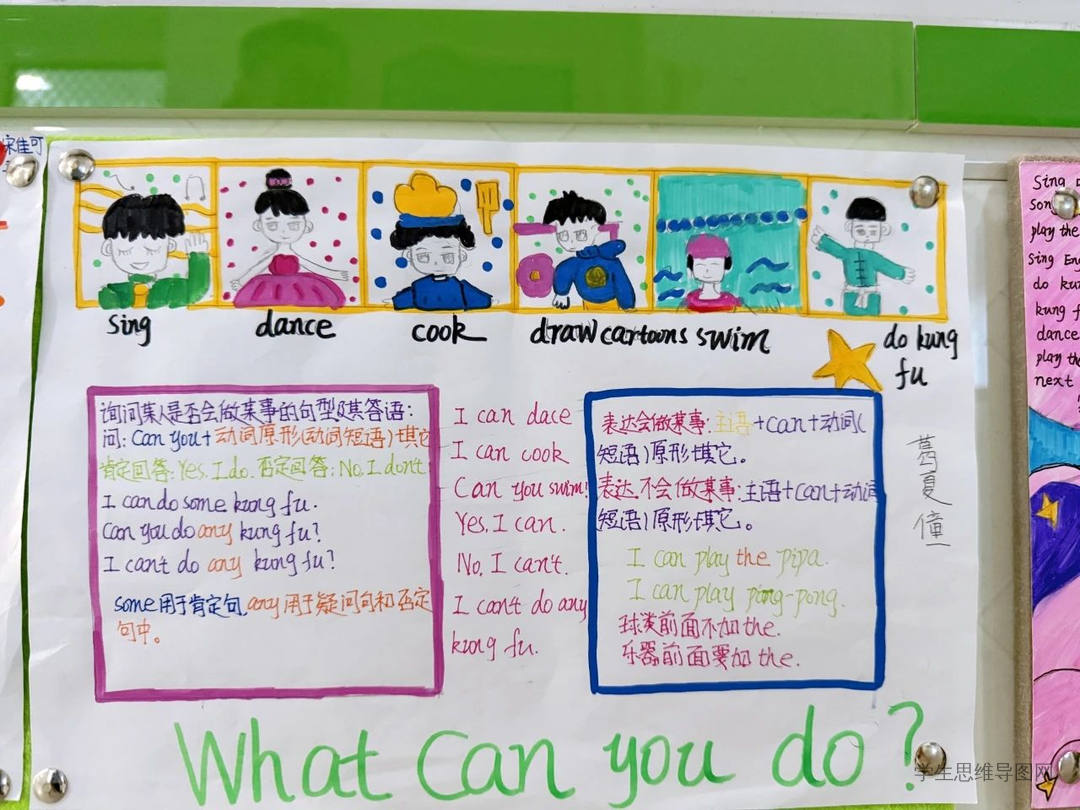 宋佳可
sing
dance
cook
draw cartoons
swim
do kung
fu
询问某人是否会做某事的句型及其答语:
问: Can you+动词原形(动词短语)+其它
肯定回答: Yes, I do. 否定回答: No, I don't
I can do some kung fu.
Can you do any kung fu?
I can't do any kung fu?
some用于肯定句,any用于疑问句和否定
句中。
I can dace
I can cook
Can you swim!
Yes, I can.
No, I can't.
I can't do any
kung fu.
表达会做某事:主语+can+动词(
短语)原形+其它。
表达不会做某事:主语+can+动词
短语)原形+其它。
I can play the pipa.
I can play ping-pong.
球类前面不加the.
乐器前面要加the.
葛夏僮
What can you do?
Sing
Son
play the
Sing Eng
do kun
kung f
dance
play the
next
学生思维导图网